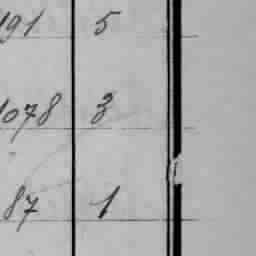 191 5
1078 3
87 1